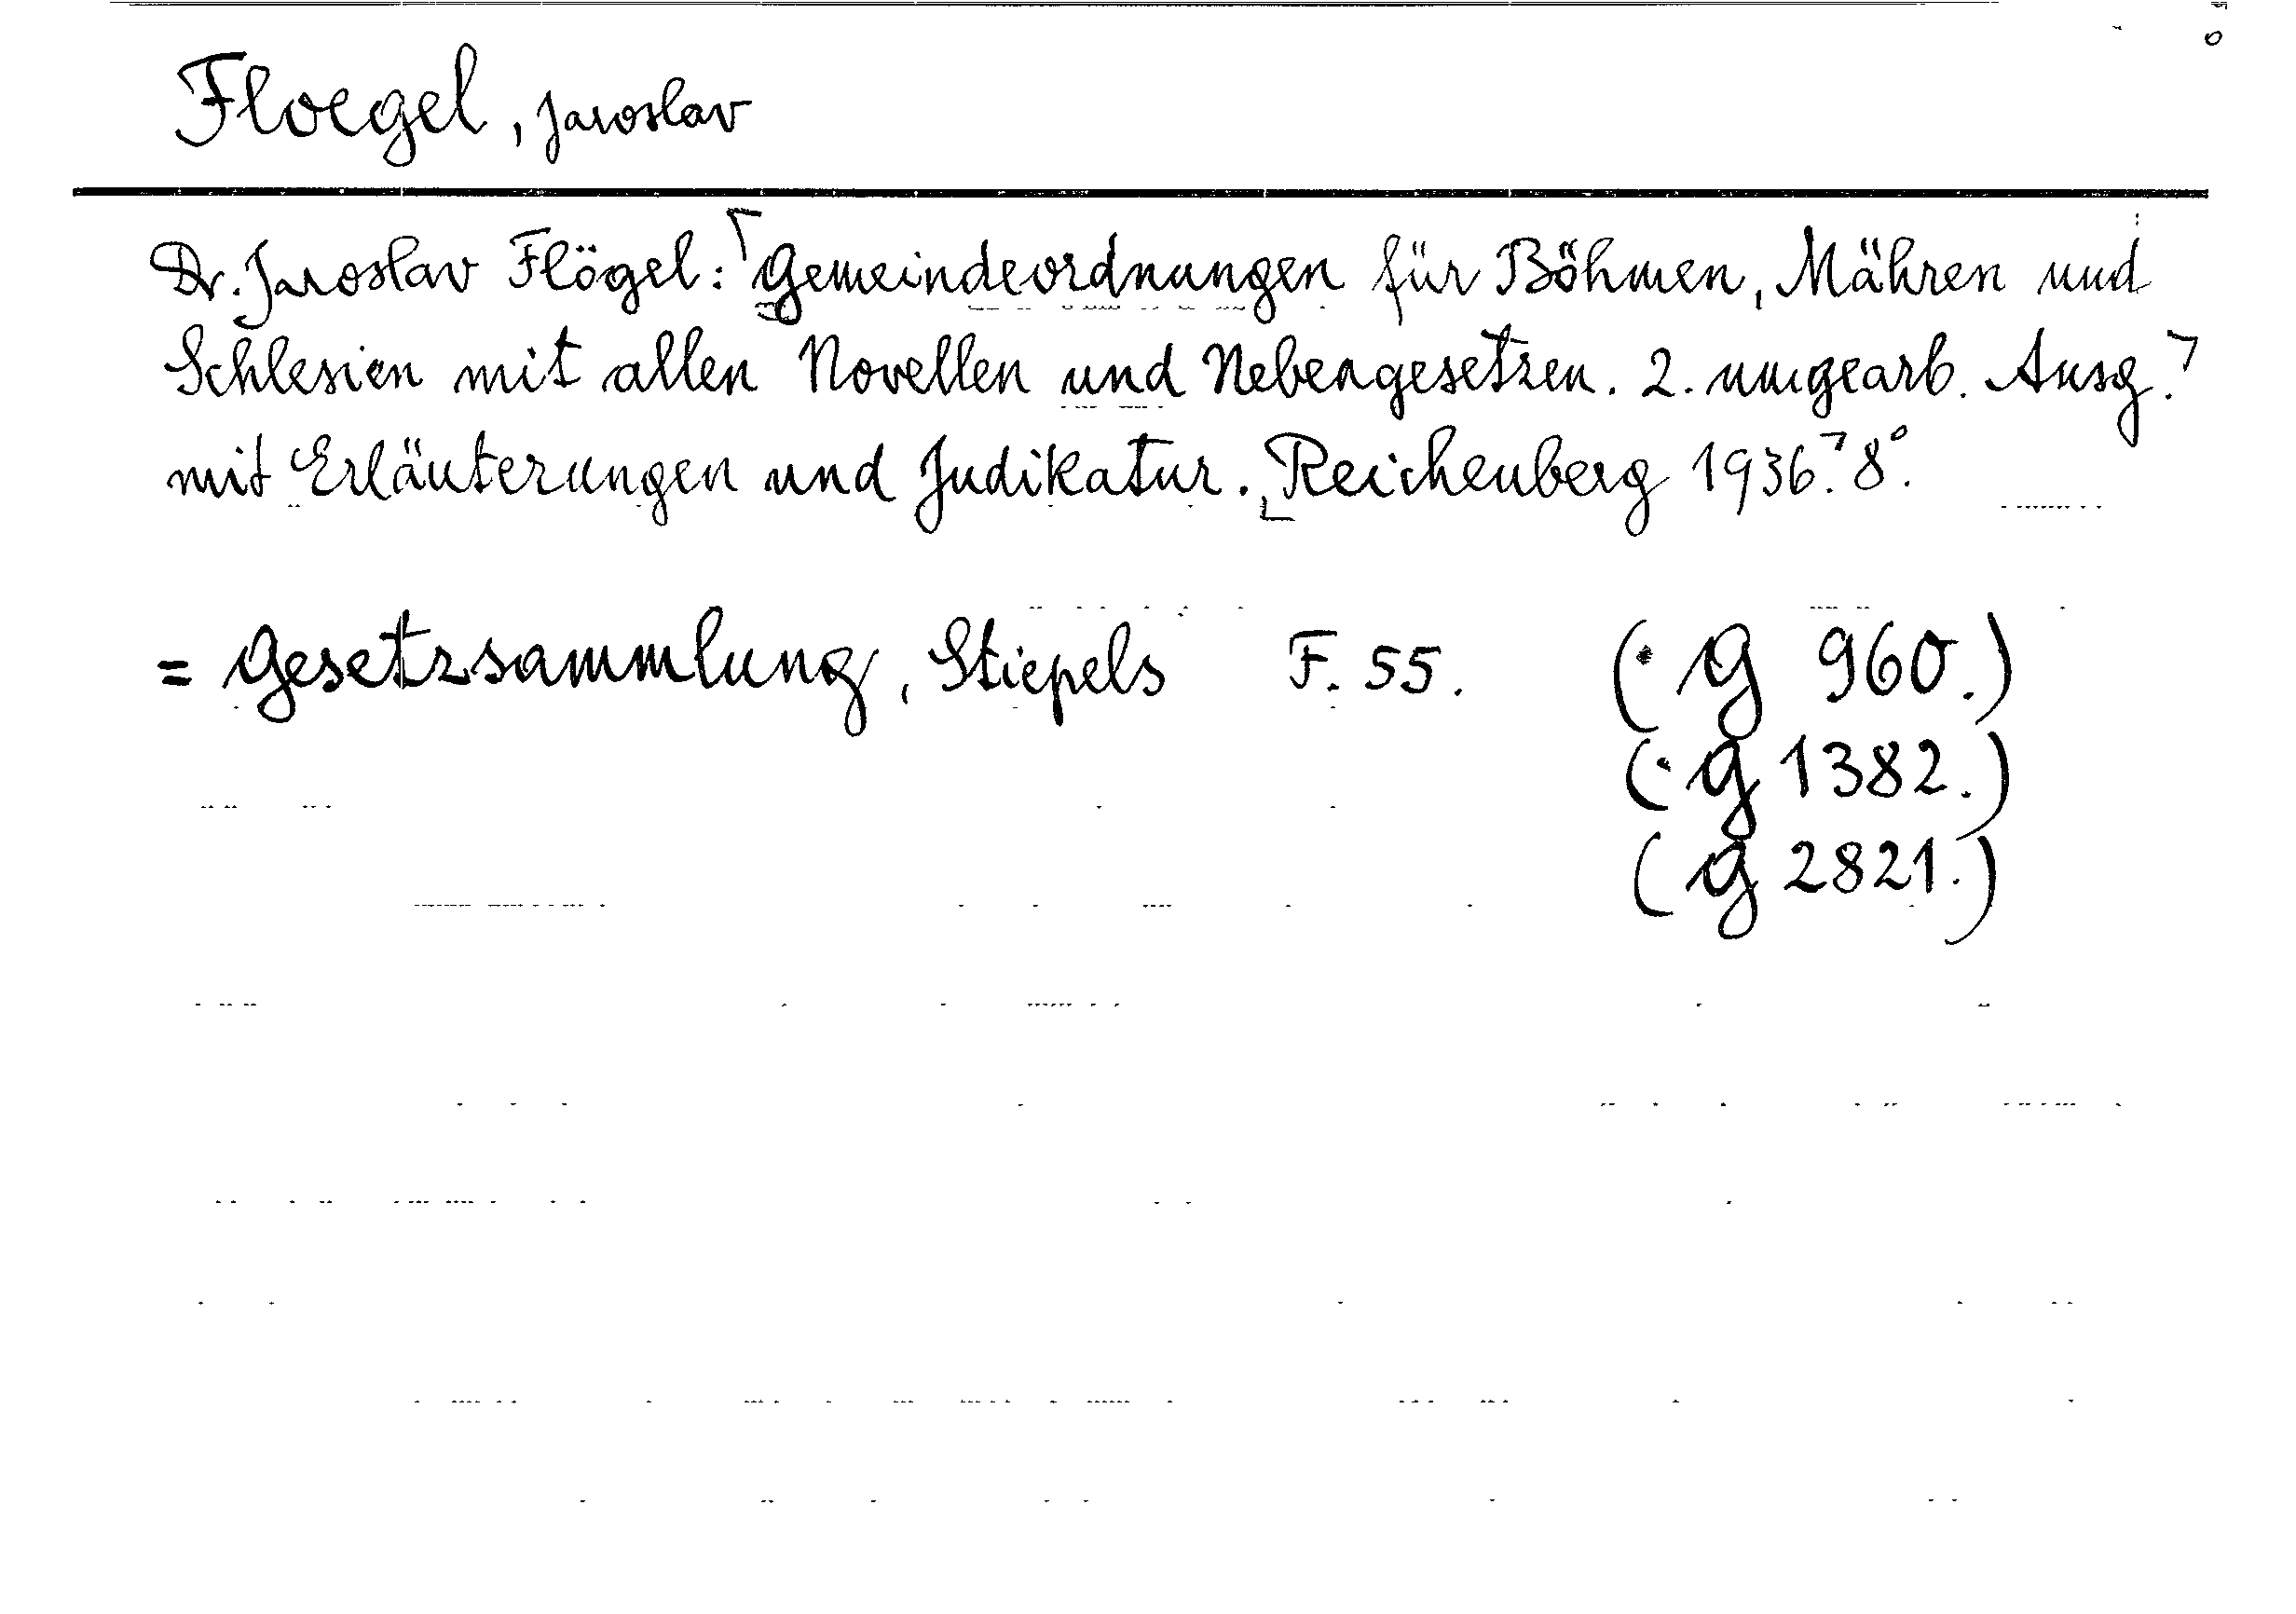 Floegel, Jaroslav
Dr. Jaroslav Flögel: ⌜Gemeindeordnungen für Böhmen, Mähren und
Schlesien mit allen Novellen und Nebengesetzen. 2. umgearb. Ausg.⌝
mit Erläuterungen und Judikatur. ⌞Reichenberg 1936.⌝ 8°.
= Gesetzsammlung, Stiepels F. 55. (· G 960.)
(· G 1382.)
(G 2821.)